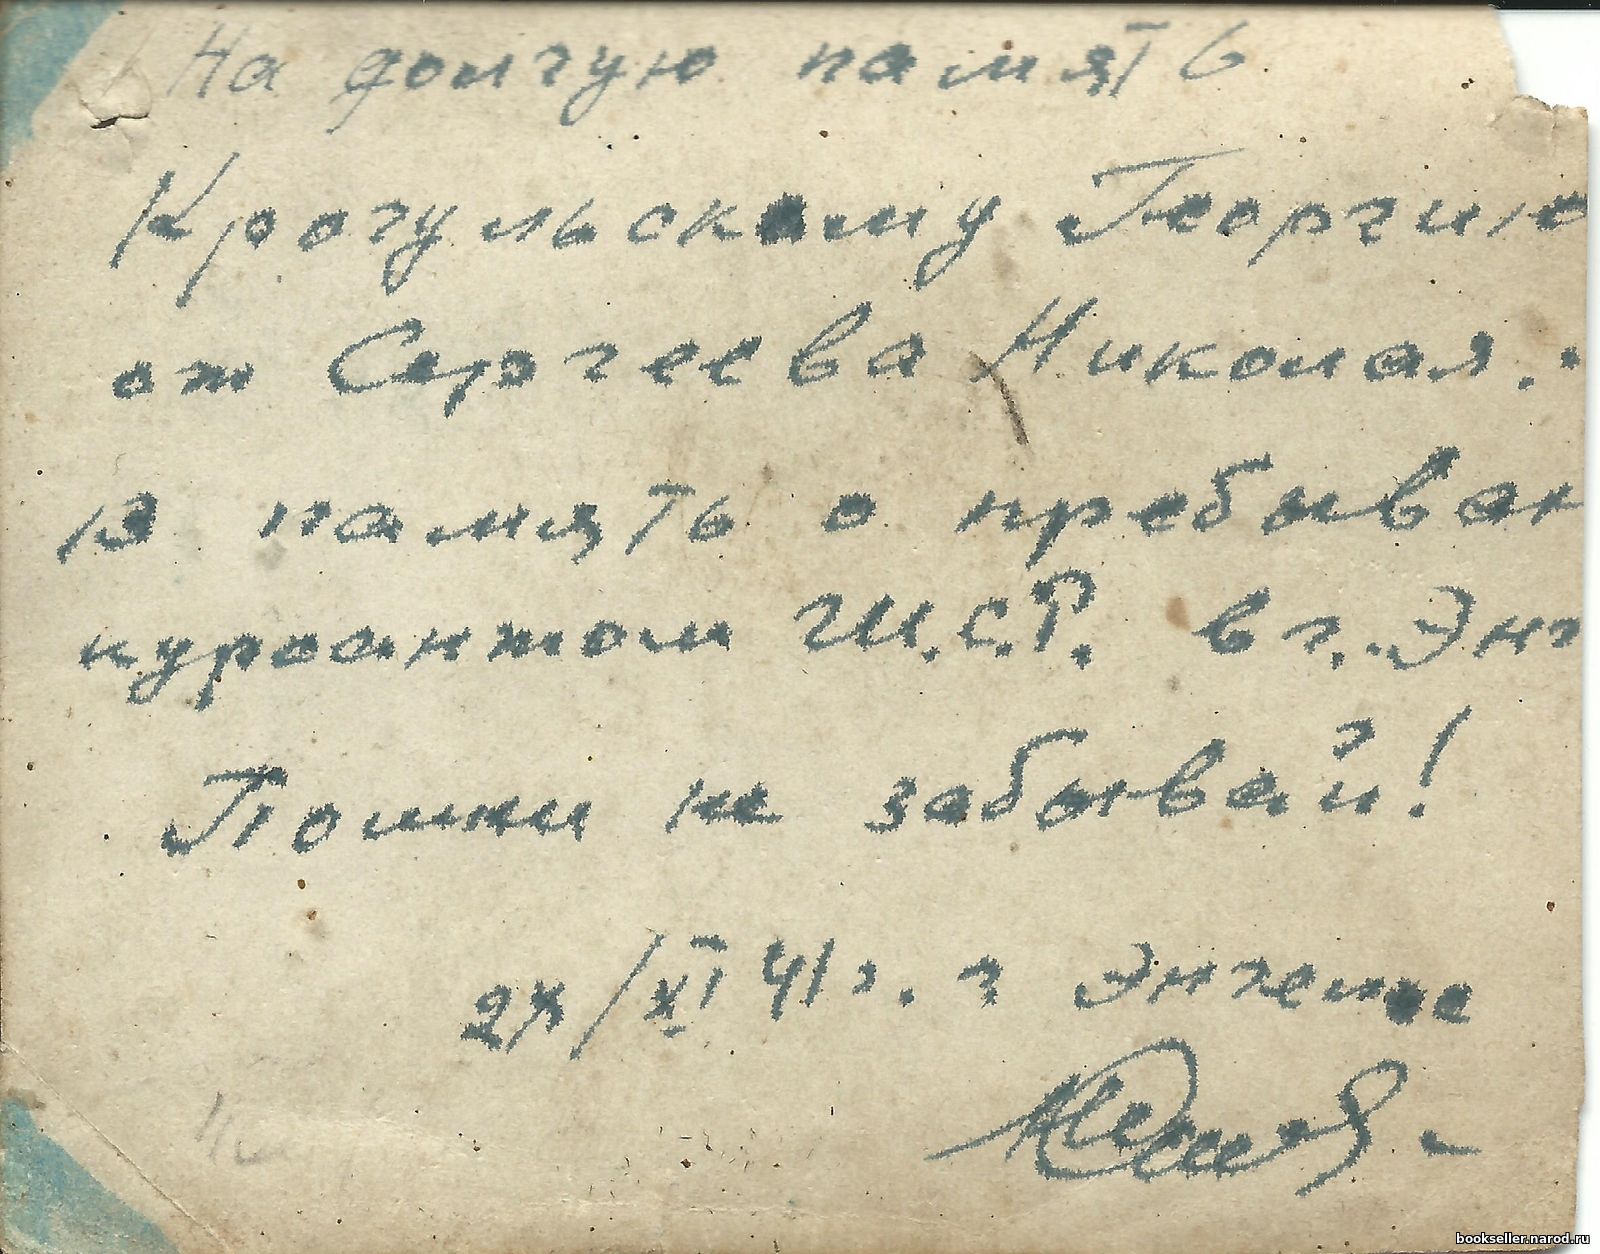 На долгую память
Крогульскому Георгию
от Сергеева Николая.
В память о пребыван
курсантом Ш.С.Р. в г. Энг
Помни не забывай!
27/XI 41г. г Энгельс
bookseller.narod.ru